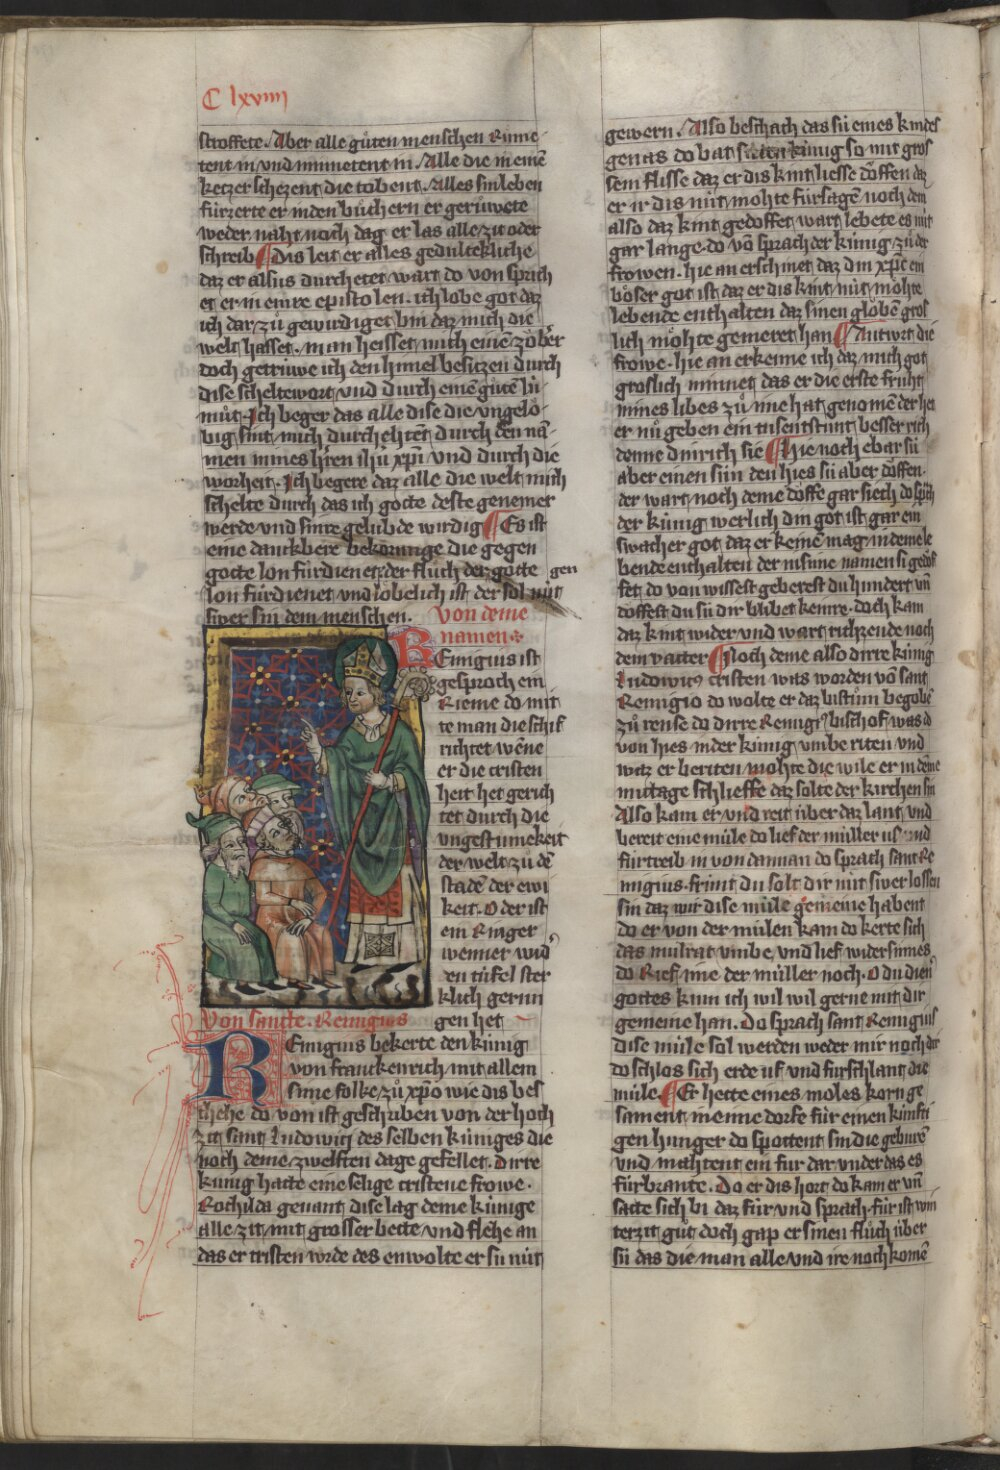 C lxviiii
stroffete. Aber alle gůten menschen Růme
tent in vnd minnetent in. Alle die in einē
ketzer schezent die tobent. Alles sin leben
fürzerte er in den bůchern er gerůwete
weder naht noch dag er las alle zit oder
schreib Dis leit er alles gedulteklich
daz er alsus durchehtet wart do von sprich
et er in einre epistolen. ich lobe got daz
ich dar zů gewirdiget bin daz mich die
welt hasset. man heisset mich einē zöber
doch getrüwe ich den himel besitzen durch
dise scheltewort vnd durch einē gůtē lü
můt. Ich beger das alle dise die vngelö
big sint mich durchehtēt durch den nā
men mines hren ihu xpi vnd durch die
worheit. Ich begere daz alle die welt mich
schelte durch das ich gotte deste genemer
werde vnd sinre gelübde wirdig Es ist
eine danckbere bekorunge die gegen
gotte lon fürdienet der flůch der gotte gen
lon fürdienet vnd löbelich ist der sol nüt
swer sin dem menschen. von deme
namen
Remigius ist
gesproch ein
Rieme do mit
te man die schif
richtet wēne
er die cristen
heit het gerich
tet durch die
vngestimekeit
der welt zů dē
stadē der ewi
keit. Oder ist
ein Ringer
wenner wid
den tüfel ster
klich gerun
gen het
von sancte. Remigius
Remigius bekerte den künig
von franckenrich mit allem
sime folke zů xpo wie dis bes
chehe do von ist geschriben von der hoch
zit sant Ludowici des selben küniges die
noch deme zwelften dage gefellet. Dirre
künig hatte eine selige cristene frowe.
Rochilda genant dise lag deme künige
alle zit mit grosser bette vnd flehe an
das er cristen wrde des enwolte er sü nüt
gewern. Also beschach das sü eines kindes
genas do bat sü den künig so mit gros
sem flisse daz er dis kint liesse döffen daz
er ir dis nüt mohte fürsagē noch dem
also daz kint gedöffet wart lebete es nüt
gar lange. do vō sprach der künig zů der
frowen. hie an erschinet daz din xpc ein
böser got ist daz er dis kint nüt mohte
lebende enthalten daz sinen glöbē gros
lich möhte gemeret han Antwrt die
frowe. hie an erkenne ich daz mich got
groslich minnet das er die erste fruht
mines libes zů nime hat genomē der het
er nů geben ein tusentstunt besser rich
denne din rich sie Hie noch ebar sü
aber einen sün den hies sü aber döffen.
der wart noch deme döffe gar siech do sprach
der künig werlich din got ist gar ein
swacher got daz er keinē mag in deme le
bende enthalten der in sime namen si gedöf
fet do von wissest geberest du hundert vn
döffest du sü dir blibet keinre. doch kam
daz kint wider vnd wart richzende noch
dem vatter Noch deme also dirre künig
Ludowig cristen was worden vō sant
Remigio do wolte er daz bistům begobē
zů rense do dirre Remigius bischof was do
von hies in der künig vmbe riten vnd
waz er beriten mohte die wile er in deme
mittage schlieffe daz solte der kirchen sin
Also kam er vnd reit über daz lant vnd
bereit eine müle do lief der müller us vnd
fürtreib in von dannan do sprach sant Re
migius. frünt du solt dir nüt swer lossen
sin daz wir dise müle gemeine habent
do er von der mülen kam do kerte sich
das mulrat vmbe vnd lief widersinnes
do Rief ime der müller noch. O du dien
gottes kum ich wil wil gerne mit dir
gemeine han. Do sprach sant Remigius
dise müle sol werden weder mir noch dir
do schlos sich erde uf vnd furschlant die
müle Er hette eines moles korn ge
sament in eime dorfe für einen künfti
gen hunger do spottent sin die geburē
vnd mahtent ein für dar vnder das es
fürbrante. Do er dis hort do kam er vn
satte sich bi daz für vnd sprach. für ist win
terzit gůt doch gap er sinen flůch über
sü das die man alle vnd ire nochkomē